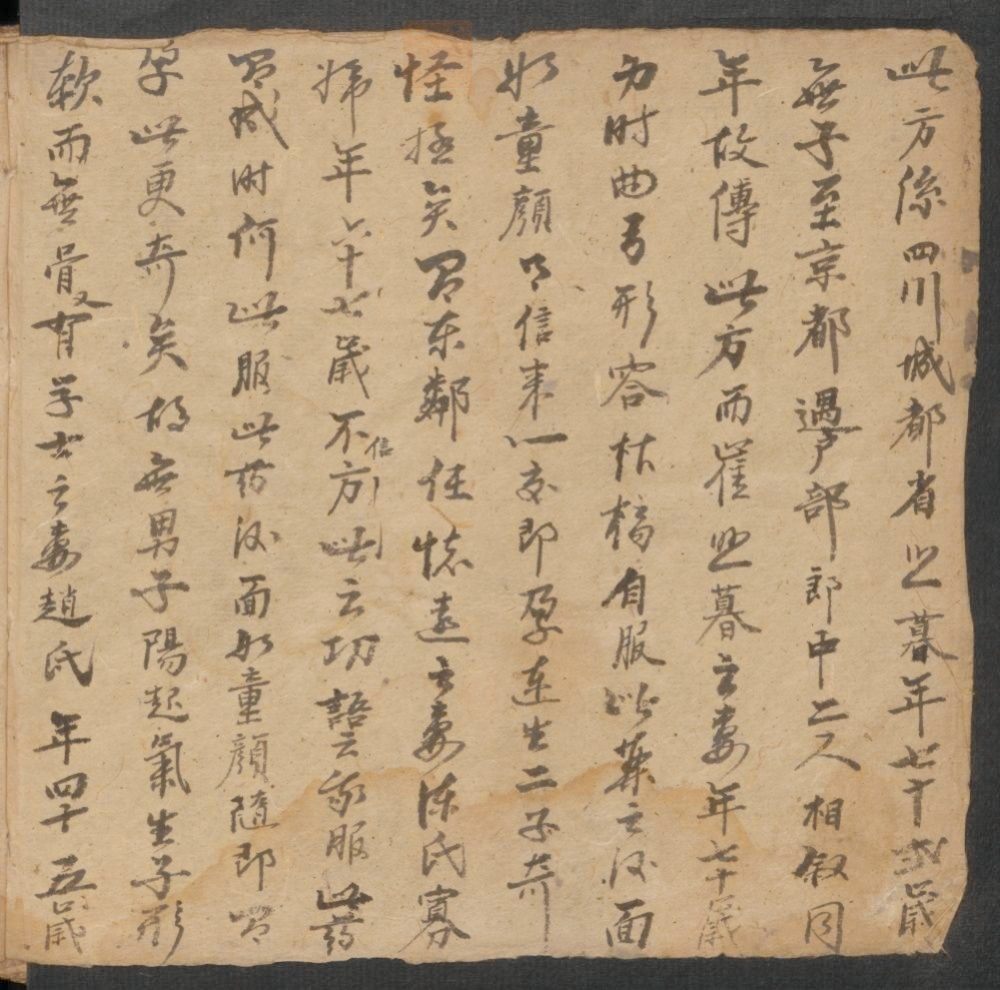 此方係四川城都省之暮年七十弍歲
無子至京都遇戸部郎中二人相叙同
年故傳此方而崔與暮之妻年七十歲
力时曲弓形容枯槁自服此藥之后面
如童顏 信来一交即孕連生二子奇
怪極矣 东鄰任懷遠之妻陈氏寡
婦年六十七歲不信方此之功語云我服此药
时何此服此药后面如童顏随即
孕此更奇矣 无男子陽起氣生子形
軟而無骨又有学士之妻趙氏年四十五歲